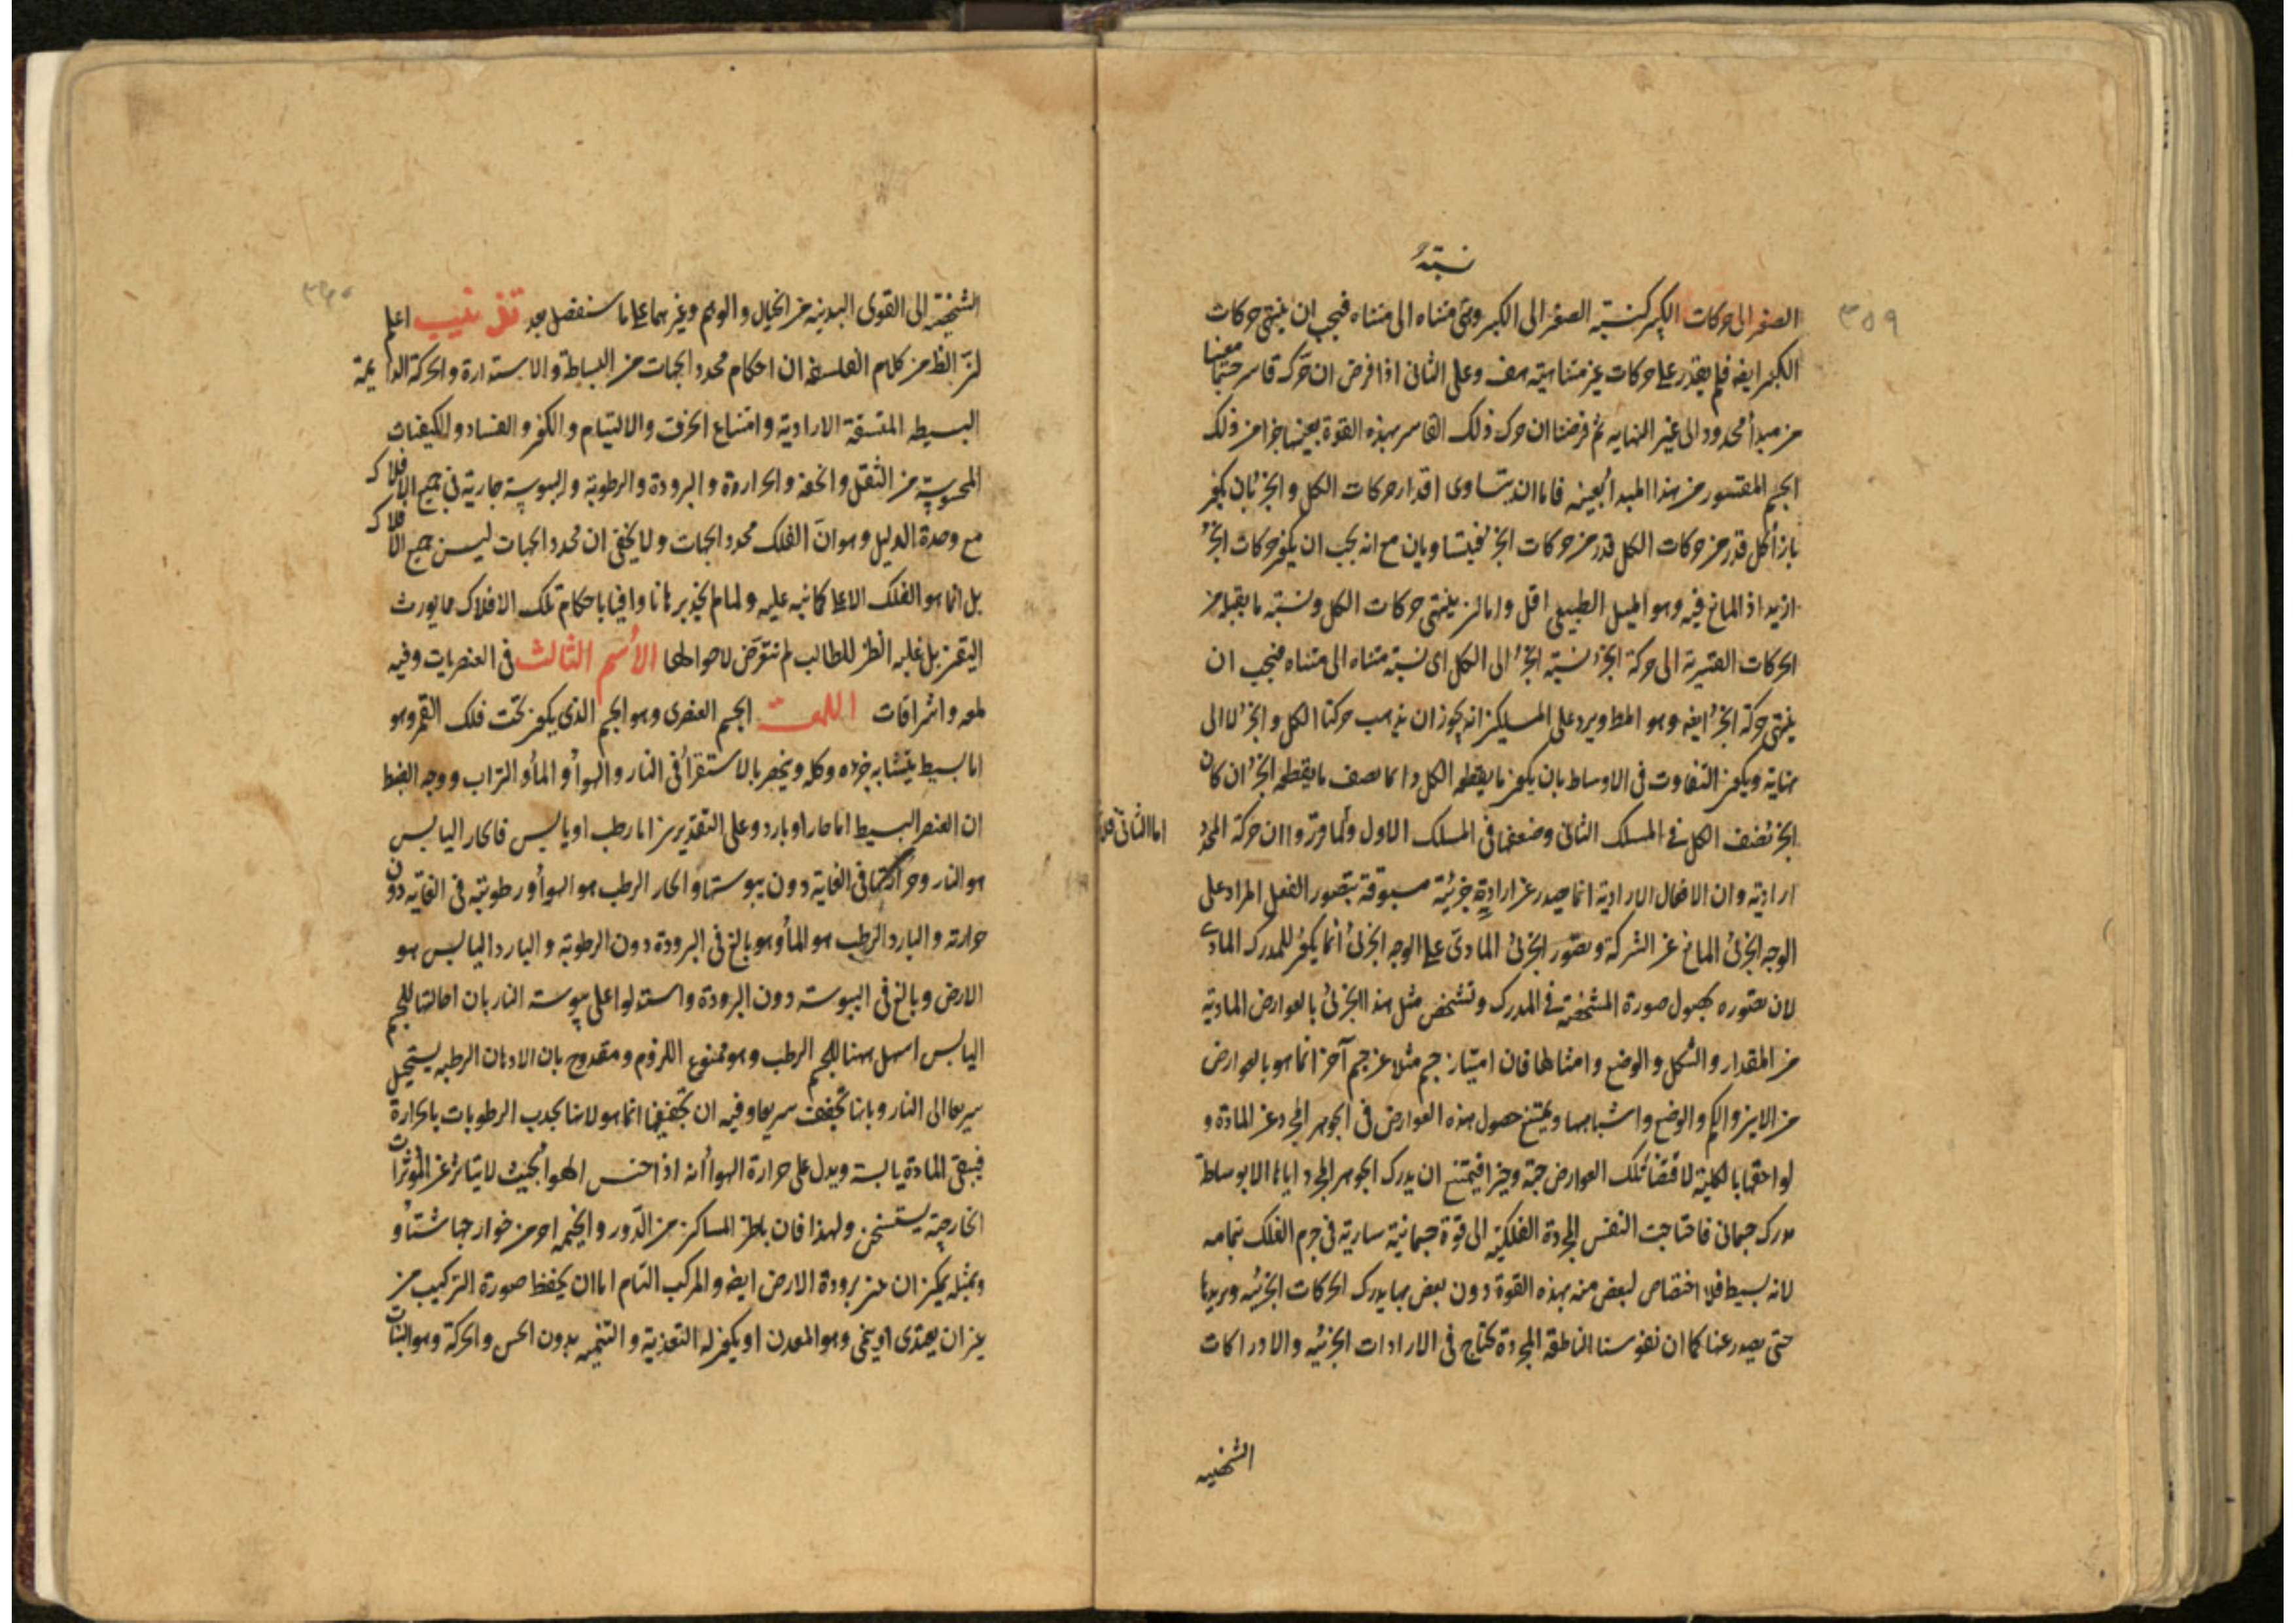 ٣٥٩
نسبة
الصغير الى حركات الكبير كنسبة الصغير الى الكبير وهى متناه الى متناه فيجب ان ينتهى حركات
الكبير ايضه فلم يقدر على حركات غير متناهية هف وعلى الثانى اذا فرض ان حرك قاسر جسما معينا
من مبدأ محدود الى غير النهايه ثم فرضنا ان حرك ذلك القاسر بهذه القوة بعينها جزأ من ذلك
الجسم المقسور من هذا المبدا بعينه فاما ان يتساوى اقدار حركات الكل والجزء بان يكون
بازاء كل قدر من حركات الكل قدر من حركات الجزء فيتساويان مع انه يجب ان يكون حركات الجزء
ازيد اذ المانع فيه وهو الميل الطبيعى اقل واما ان ينتهى حركات الكل ونسبة ما يقبل من
الحركات القسرية الى حركة الجزء نسبة الجزء الى الكل اى نسبة متناه الى متناه فيجب ان
ينتهى حركة الجزء ايضه وهو المط ويرد على المسلكين انه يجوز ان يذهب حركتا الكل والجزء لا الى
نهاية ويكون التفاوت فى الاوساط بان يكون ما يقطعه الكل دائما نصف ما يقطعه الجزء ان كان
الجزء نصف الكل فى المسلك الثانى وضعفها فى المسلك الاول ولما قرروا ان حركة المحدد
اما الثانى فلا
ارادية وان الافعال الارادية انما يصدر عن ارادية جزئية مسبوقة بتصور الفعل المراد على
الوجه الجزئى المانع عن الشركة وتصور الجزئى المادى على الوجه الجزئى انما يكون للمدرك المادى
لان تصوره بحصول صورة المشخصة فى المدرك وتشخص مثل هذا الجزئى بالعوارض المادية
من المقدار والشكل والوضع وامثالها فان امتياز جسم مثلا عن جسم آخر انما هو بالعوارض
من الاين والكم والوضع واشباهها ويمتنع حصول هذه العوارض فى الجوهر المجرد عن المادة و
لواحقها بالكلية لاقتضاء تلك العوارض جهة وحيزا فيمتنع ان يدرك الجوهر المجرد اياها الا بوساطة
مدرك جسمانى فاحتاجت النفس المجردة الفلكية الى قوة جسمانية سارية فى جرم الفلك بتمامه
لانه بسيط فلا اختصاص لبعض منه بهذه القوة دون بعض بها يدرك الحركات الجزئيه ويريدها
حتى يصدر عنها كما ان نفوسنا الناطقة المجردة تحتاج فى الارادات الجزئيه والادراكات
الشخصية
٣٦٠
الشخصية الى القوى البدنية من الخيال والوهم وغيرهما على ما سنفصل بعد تذنيب اعلم
ان الظ من كلام الفلاسفه ان احكام محدد الجهات من البساطة والاستدارة والحركة الدايمة
البسيطه المتسقة الارادية وامتناع الخرق والالتيام والكون والفساد والكيفيات
المحسوسة من الثقل والخفة والحرارة والبرودة والرطوبة واليبوسة جارية فى جميع الافلاك
مع وحدة الدليل وهو ان الفلك محدد الجهات ولا يخفى ان محدد الجهات ليس جميع الافلاك
بل انما هو الفلك الاعلى كما نبه عليه ولما لم نجد برهانا وافيا باحكام تلك الافلاك مما يورث
اليقين بل غلبه الظن للطالب لم نتعرض لاحوالها الاسم الثالث فى العنصريات وفيه
لمعه واشراقات اللمعة الجسم العنصرى وهو الجسم الذى يكون تحت فلك القمر وهو
اما بسيط يتشابه جزءه وكله وينحصر بالاستقراء فى النار والهواء والماء والتراب ووجه الضبط
ان العنصر البسيط اما حار او بارد وعلى التقديرين اما رطب او يابس فالحار اليابس
هو النار وحرارتها فى الغاية دون يبوستها والحار الرطب هو الهواء ورطوبته فى الغايه دون
حرارته والبارد الرطب هو الماء وهو بالغ فى البرودة دون الرطوبة والبارد اليابس هو
الارض وبالغ فى اليبوسته دون البرودة واستدلوا على يبوسة النار بان احالتها للجسم
اليابس اسهل منها للجسم الرطب وهو ممنوع اللزوم ومقدوح بان الادهان الرطبه يستحيل
سريعا الى النار وبانها تجفف سريعا وفيه ان تجفيفها انما هو لانها يجذب الرطوبات بالحرارة
فيبقى المادة يابسة ويدل على حرارة الهواء انه اذا احتبس الهواء بحيث لا يتاثر عن المؤثرات
الخارجية يستسخن ولهذا فان باطن المساكن من الدور والخيمه احر من خوارجها شتاء و
بمثله يمكن ان يبين برودة الارض ايضه والمركب التام اما ان يحفظ صورة التركيب من
غير ان يغتذى او ينمى وهو المعدن او يكون له التغذية والتنميه بدون الحس والحركة وهو النبات